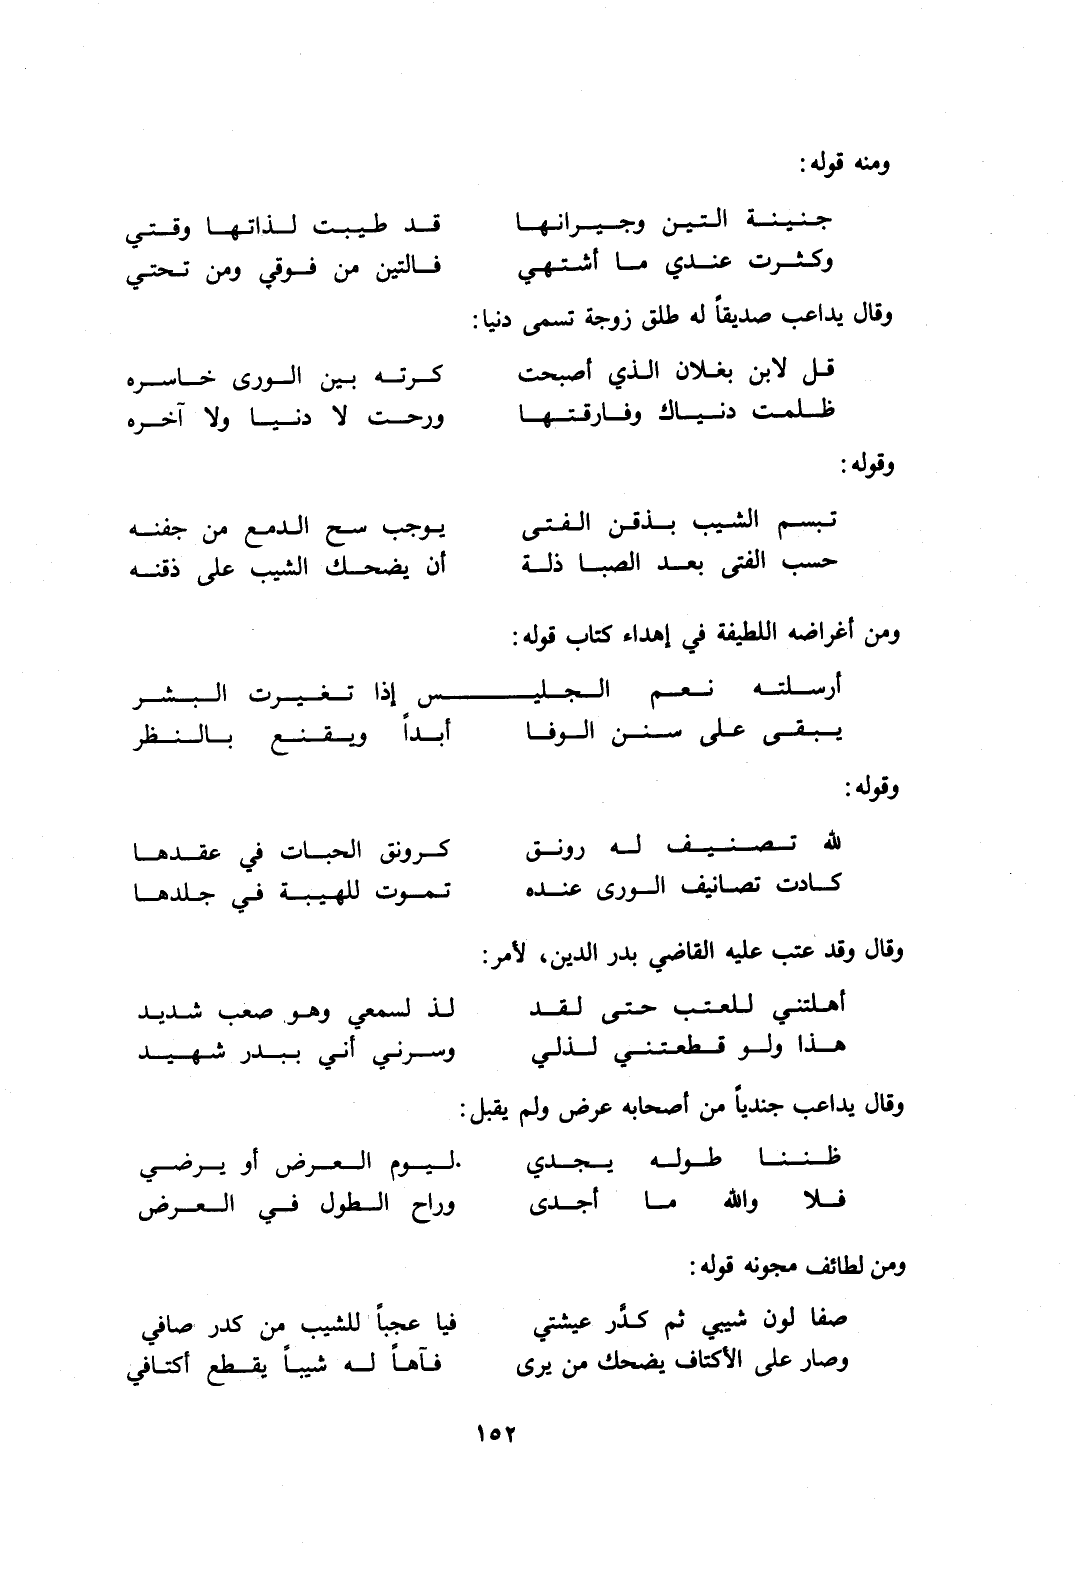 ومنه قوله:
جنينة التين وجيرانها قد طيبت لذاتها وقتي
وكثرت عندي ما أشتهي فالتين من فوقي ومن تحتي
وقال يداعب صديقاً له طلق زوجة تسمى دنيا:
قل لابن بغلان الذي أصبحت كرته بين الورى خاسره
ظلمت دنياك وفارقتها ورحت لا دنيا ولا آخره
وقوله:
تبسم الشيب بذقن الفتى يوجب سح الدمع من جفنه
حسب الفتى بعد الصبا ذلة أن يضحك الشيب على ذقنه
ومن أغراضه اللطيفة في إهداء كتاب قوله:
أرسلته نعم الجليس إذا تغيرت البشر
يبقى على سنن الوفا أبداً ويقنع بالنظر
وقوله:
لله تصنيف له رونق كرونق الحبات في عقدها
كادت تصانيف الورى عنده تموت للهيبة في جلدها
وقال وقد عتب عليه القاضي بدر الدين، لأمر:
أهلتني للعتب حتى لقد لذ لسمعي وهو صعب شديد
هذا ولو قطعتني لذلي وسرني أني ببدر شهيد
وقال يداعب جندياً من أصحابه عرض ولم يقبل:
ظننا طوله يجدي ليوم العرض أو يرضي
فلا والله ما أجدى وراح الطول في العرض
ومن لطائف مجونه قوله:
صفا لون شيبي ثم كدَّر عيشتي فيا عجباً للشيب من كدر صافي
وصار على الأكتاف يضحك من يرى فآهاً له شيباً يقطع أكتافي
١٥٢